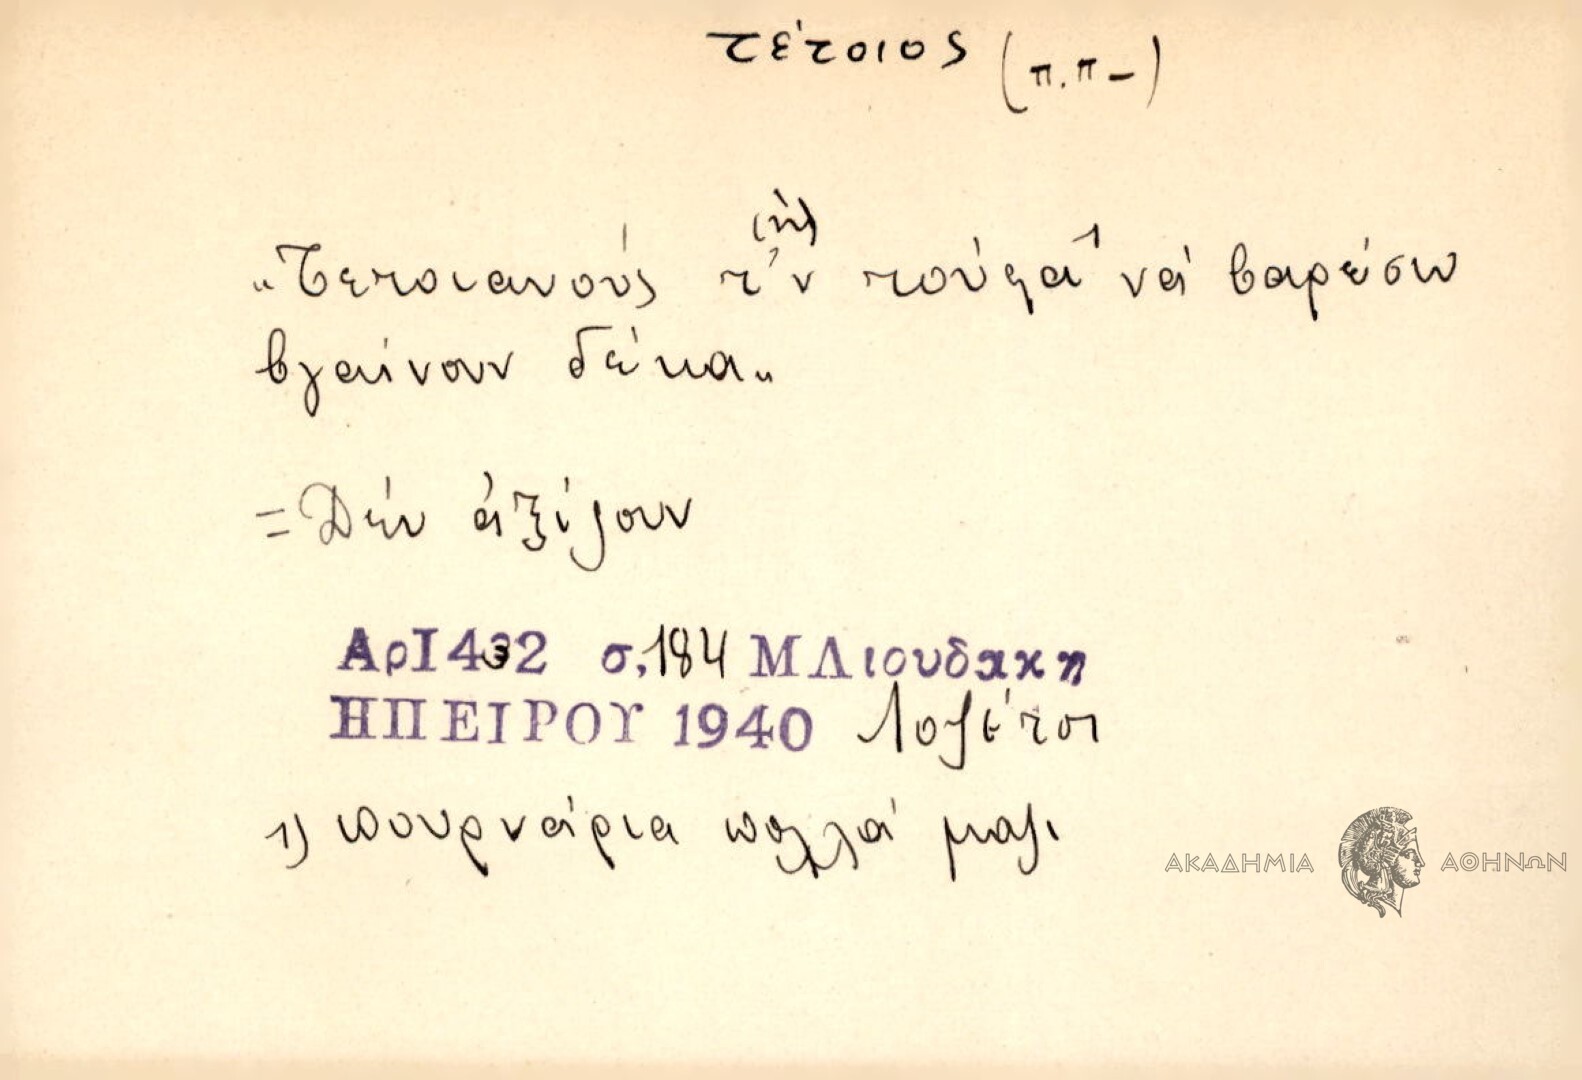 τέτοιος (π.π-)
(ὴ)
„Τετοιανούς τ'ν τούφα¹ νά βαρέσω
βγαίνουν δέκα„
= Δέν ἀξίζουν
ΑρΙ432 σ,184 Μ Λιουδακη
ΗΠΕΙΡΟΥ 1940 Λοζέτσι
1) πουρνάρια πολλά μαζι
ΑΚΑΔΗΜΙΑ ΑΘΗΝΩΝ